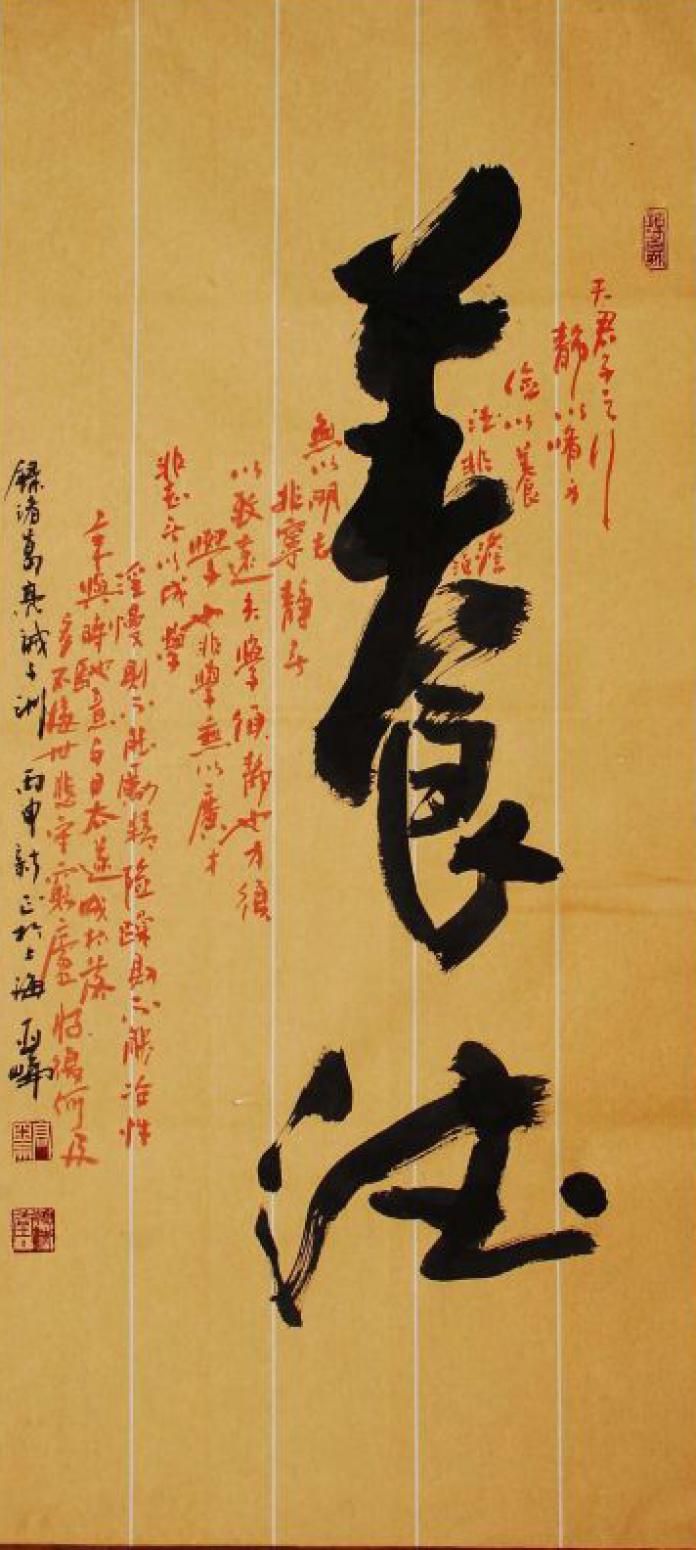 養德
夫君子之行
靜以脩身
儉以養
德非澹泊
無以明志
非寧靜無
以致遠夫學須靜也才須
學也非學無以廣才
非志無以成學
淫慢則不能勵精險躁則不能冶性
年與時馳意与日去遂成枯落
多不接世悲守窮廬將復何及
錄諸葛亮誡子訓 丙申新正於上海